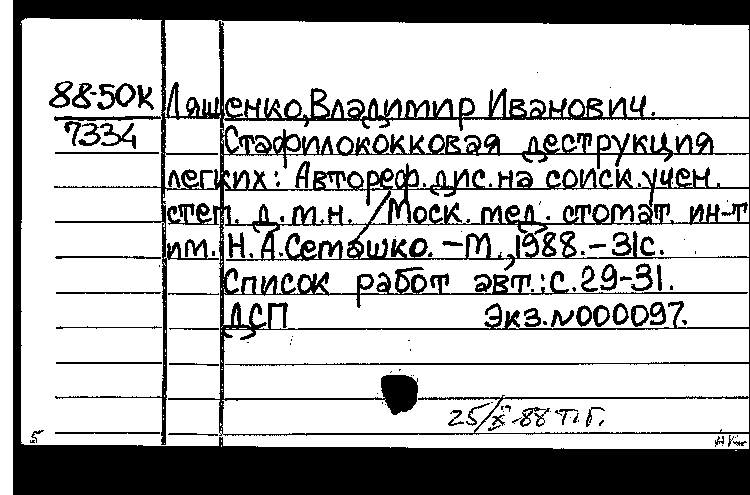 88-50К Ляшенко, Владимир Иванович.
7334 Стафилококковая деструкция
легких: Автореф. дис. на соиск. учен.
степ. д.м.н. / Моск. мед. стомат. ин-т
им. Н.А.Семашко. – М., 1988. – 31с.
Список работ авт.: с.29-31.
ДСП Экз.№000097.
25/X-88 Т.Г.
5